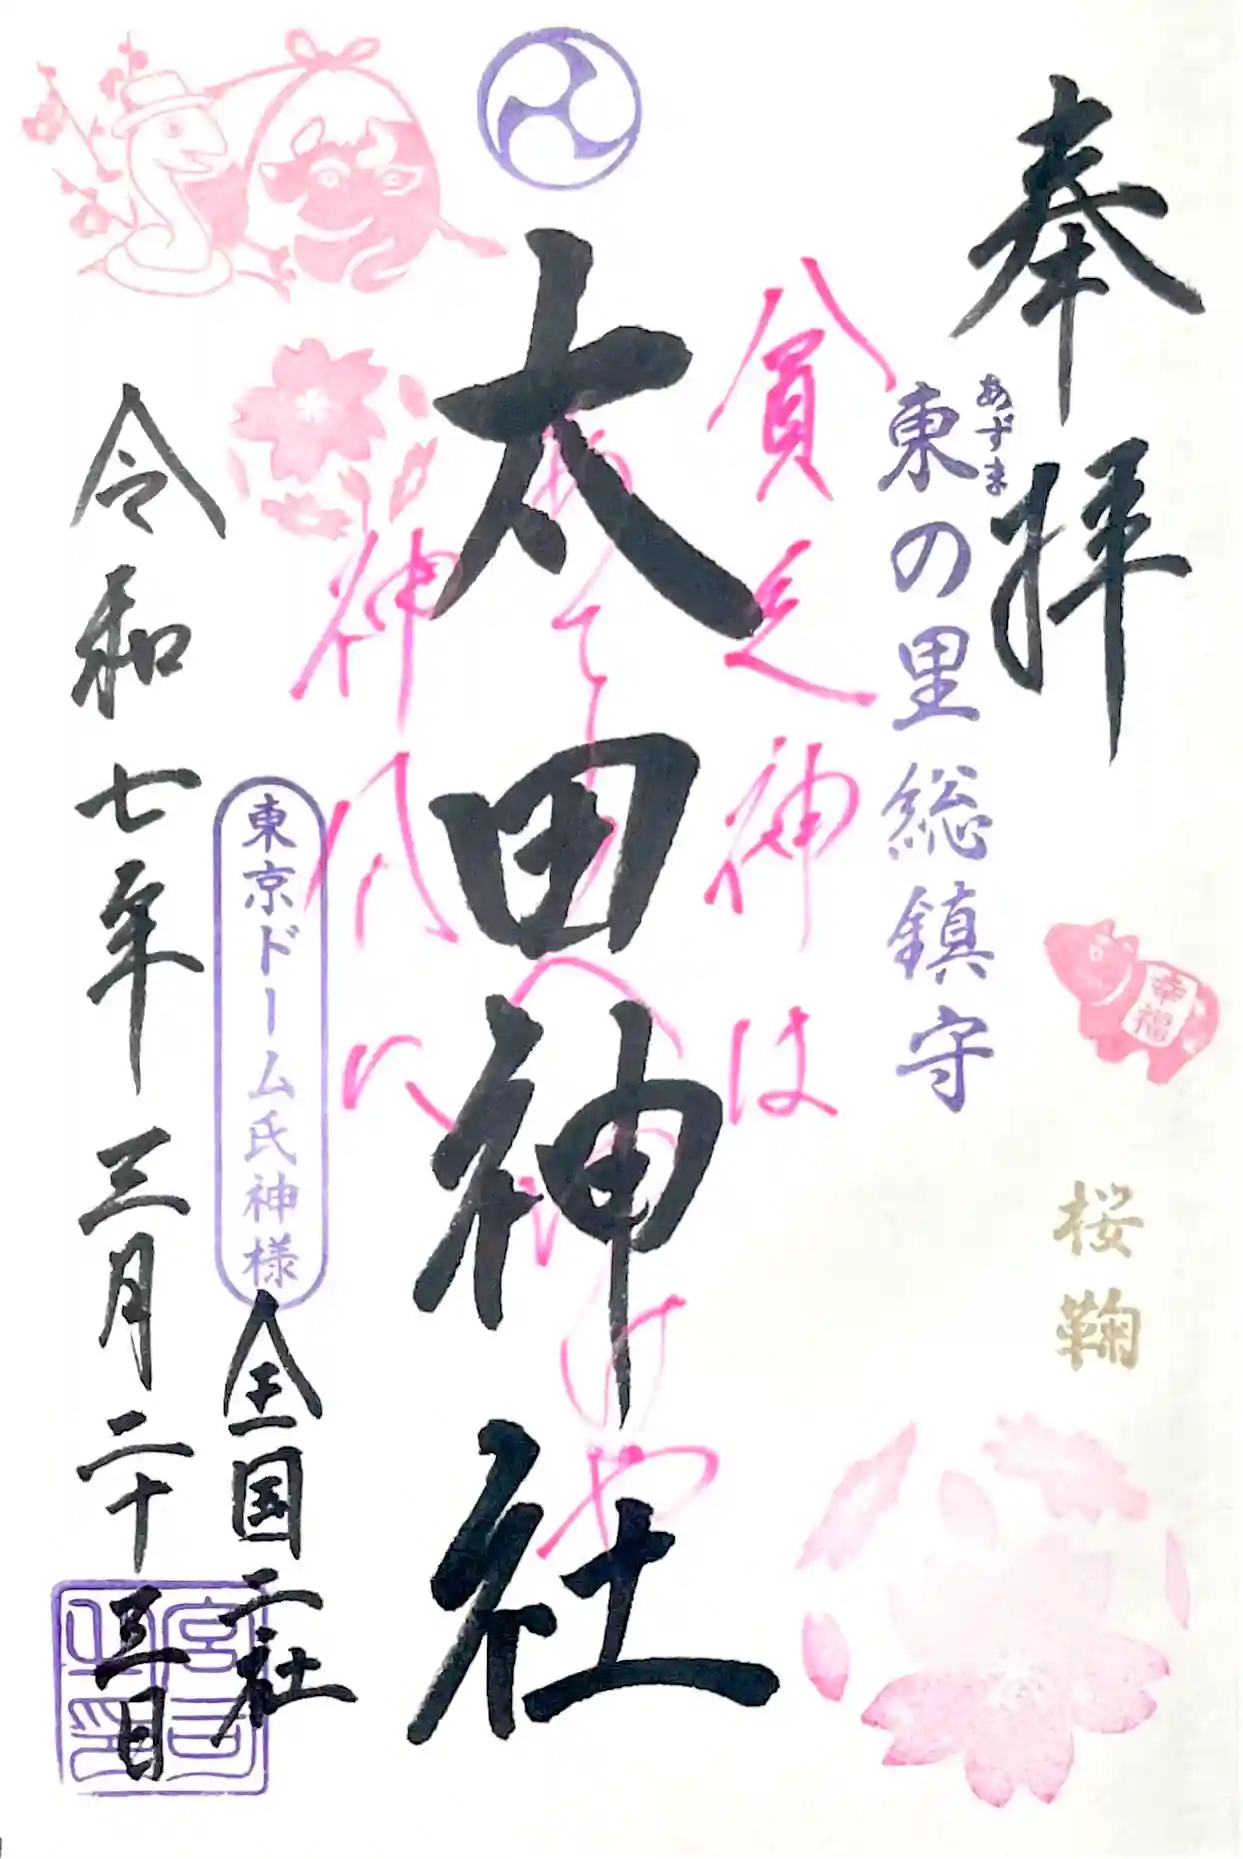 奉拝
あずま
東の里総鎮守
幸福
桜鞠
貧乏神は
太田神社
神代
東京ドーム氏神様
全国二社
令和七年三月二十三日
宮司之印